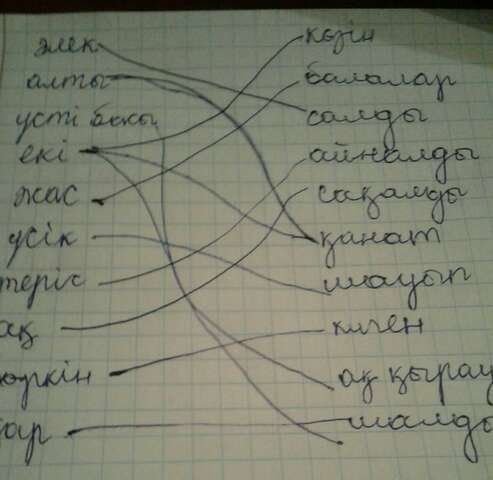 әлек
алты
үсті басы
екі
жас
үсік
теріс
ақ
көзін
балалар
салды
айналды
сақалды
қанат
шауып
киген
ақ қырау
шалды